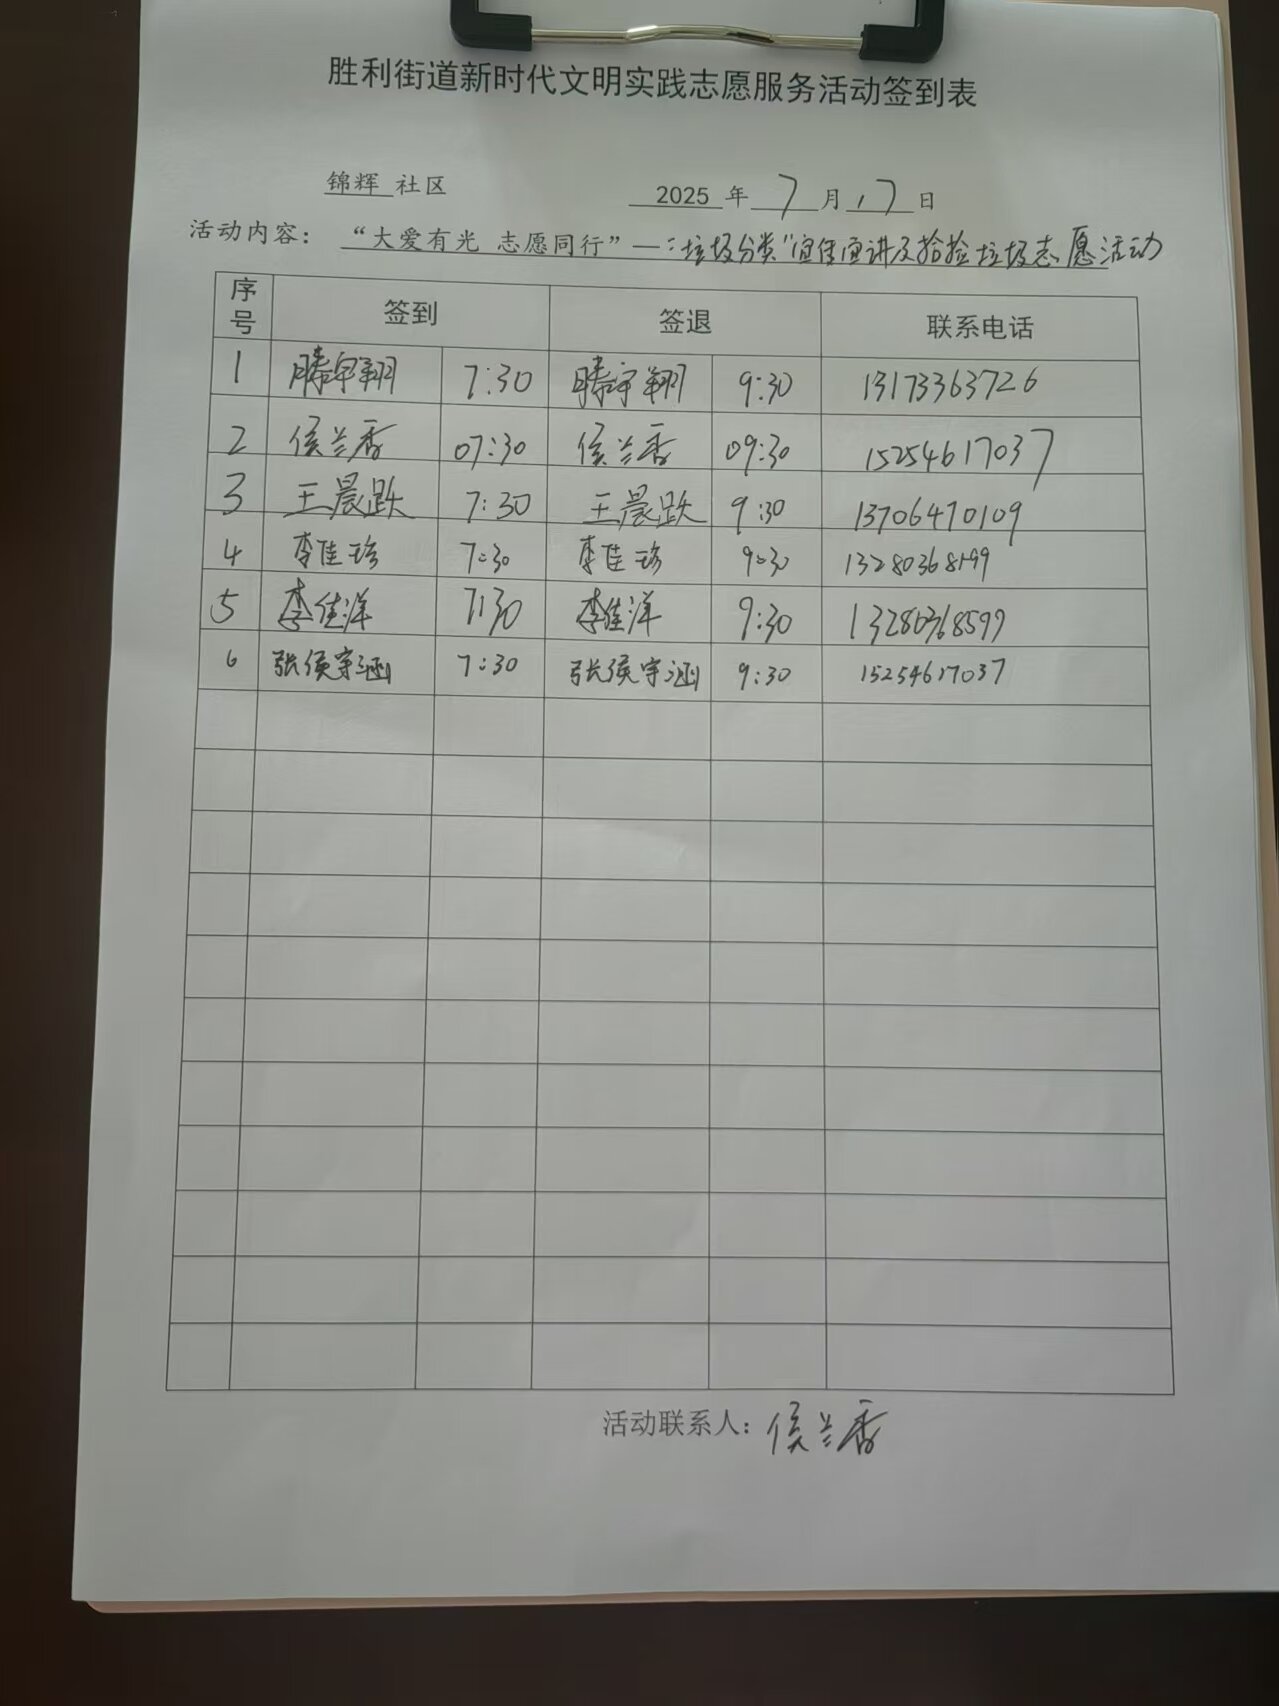 胜利街道新时代文明实践志愿服务活动签到表
锦辉 社区 2025 年 7 月 17 日
活动内容： “大爱有光 志愿同行”—“垃圾分类”宣传宣讲及捡捡垃圾志愿活动
序号 签到 签退 联系电话
1 滕宇翔 7:30 滕宇翔 9:30 13173363726
2 侯兰香 07:30 侯兰香 09:30 15254617037
3 王晨跃 7:30 王晨跃 9:30 13706470109
4 李佳珍 7:30 李佳珍 9:30 13280368199
5 李佳洋 7:30 李佳洋 9:30 13280368599
6 张侯宇涵 7:30 张侯宇涵 9:30 15254617037
活动联系人：侯兰香